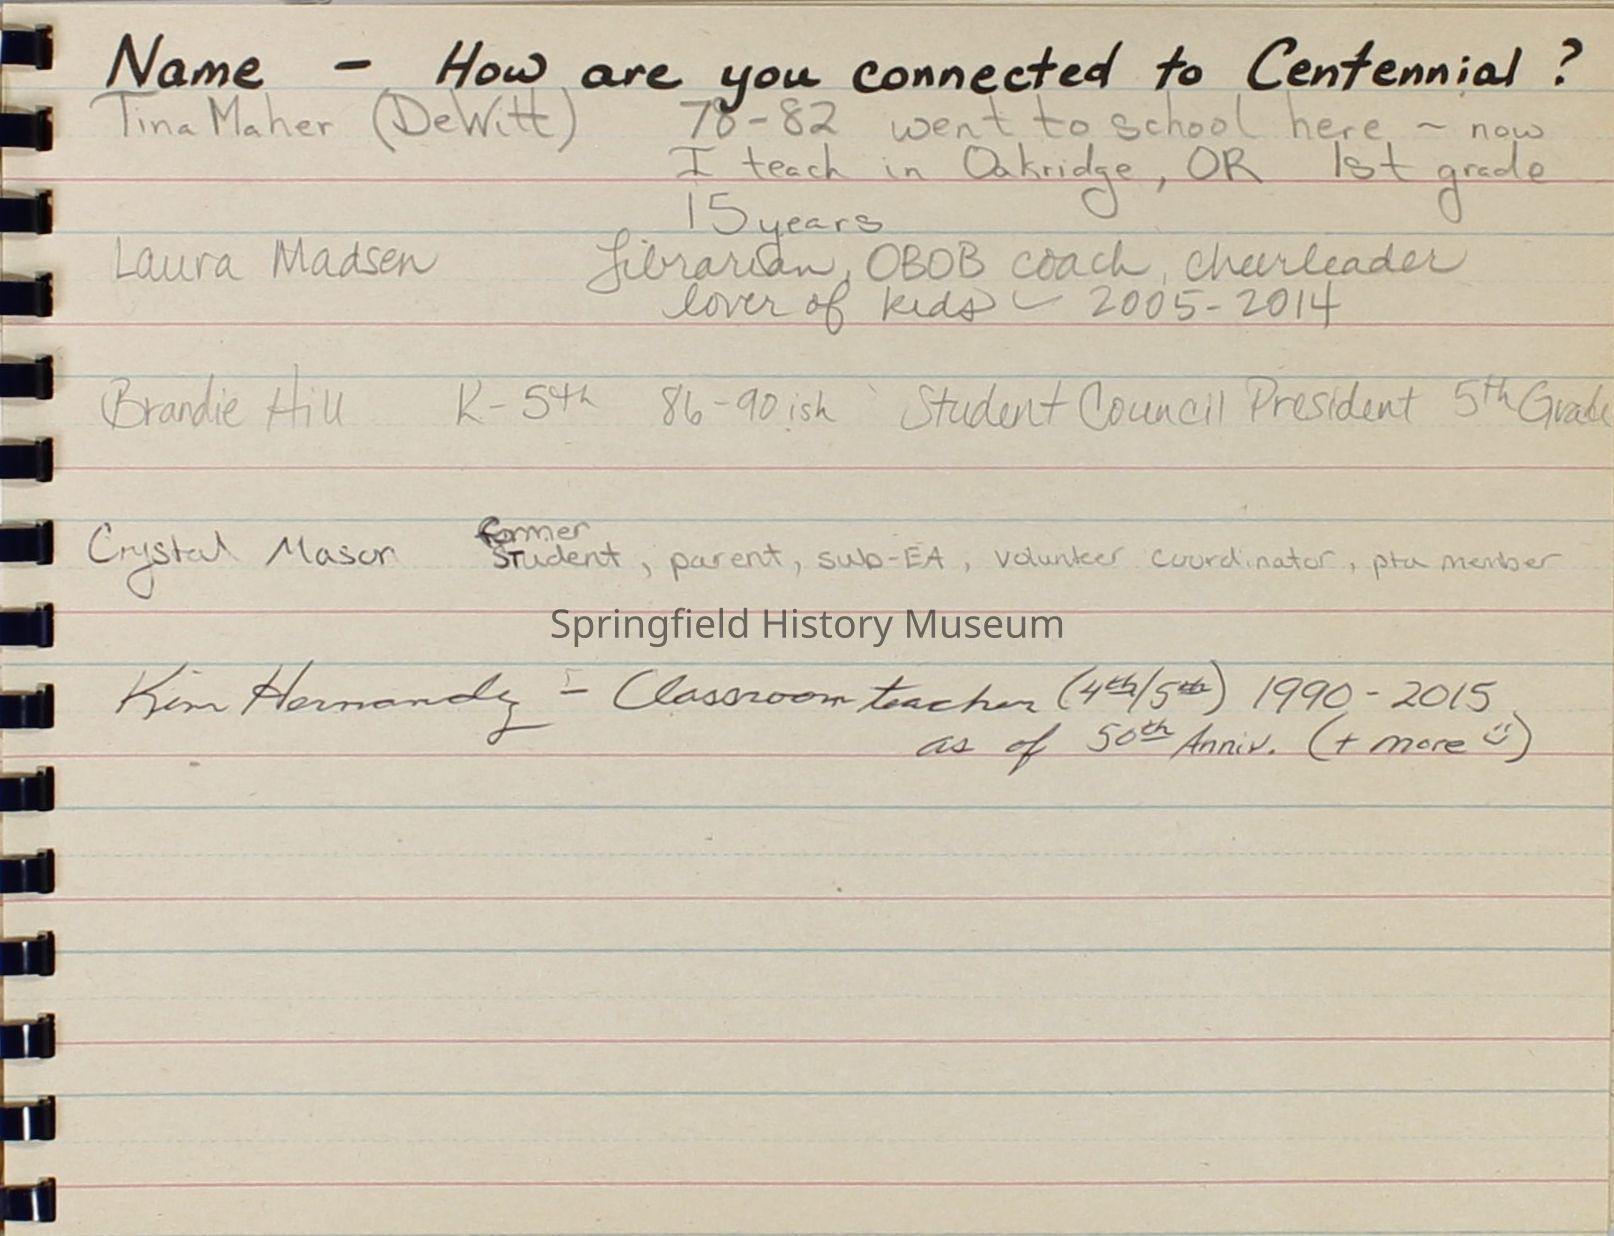 Name - How are you connected to Centennial?
Tina Maher (DeWitt) 78-82 went to school here ~ now
I teach in Oakridge, OR 1st grade
15 years
Laura Madsen Librarian, OBOB coach, cheerleader
lover of kids ~ 2005-2014
Brandie Hill K-5th 86-90ish Student Council President 5th Grade
former
Crystal Mason Student, parent, sub-EA, volunteer coordinator, pta member
Springfield History Museum
Kim Hernandez - Classroom teacher (4th/5th) 1990-2015
as of 50th Anniv. (+ more ☺)